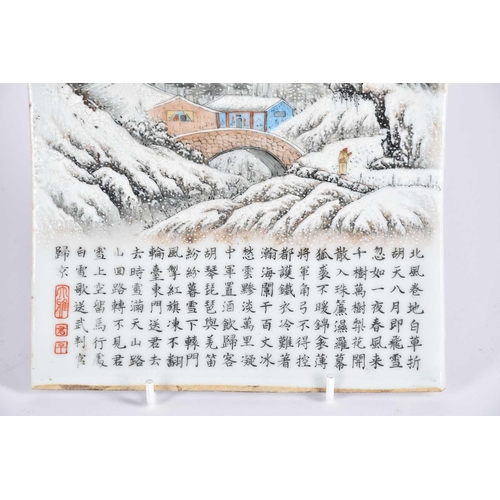 北風卷地白草折
胡天八月即飛雪
忽如一夜春風來
千樹萬樹梨花開
散入珠簾濕羅幕
狐裘不暖錦衾薄
將軍角弓不得控
都護鐵衣冷難著
瀚海闌干百丈冰
愁雲黪淡萬里凝
中軍置酒飲歸客
胡琴琵琶與羌笛
紛紛暮雪下轅門
風掣紅旗凍不翻
輪臺東門送君去
去時雪滿天山路
山回路轉不見君
雪上空留馬行處
白雪歌送武判官
歸京